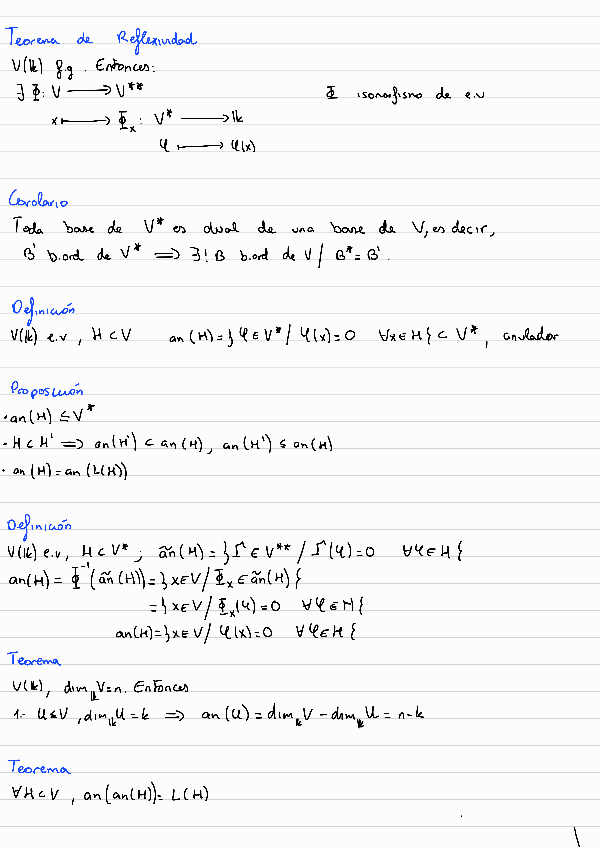 Teorema de Reflexividad
V(𝕜) f.g. Entonces:
∃ Φ: V ⟶ V** Φ isomorfismo de e.v
x ⟼ Φₓ: V* ⟶ 𝕜
φ ⟼ φ(x)
Corolario
Toda base de V* es dual de una base de V, es decir,
B' b.ord de V* ⟹ ∃! B b.ord de V / B* = B'.
Definición
V(𝕜) e.v, H ⊂ V an(H) = {φ ∈ V* / φ(x) = 0 ∀x ∈ H} ⊂ V*, anulador
Proposición
· an(H) ≤ V*
· H ⊂ H' ⟹ an(H') ⊂ an(H), an(H') ≤ an(H)
· an(H) = an(L(H))
Definición
V(𝕜) e.v, H ⊂ V*, ãn(H) = {Γ ∈ V** / Γ(φ) = 0 ∀φ ∈ H}
an(H) = Φ⁻¹(ãn(H)) = {x ∈ V / Φₓ ∈ ãn(H)}
= {x ∈ V / Φₓ(φ) = 0 ∀φ ∈ H}
an(H) = {x ∈ V / φ(x) = 0 ∀φ ∈ H}
Teorema
V(𝕜), dim_𝕜 V = n. Entonces
1.- U ≤ V, dim_𝕜 U = k ⟹ an(U) = dim_𝕜 V − dim_𝕜 U = n − k
Teorema
∀H ⊂ V, an(an(H)) = L(H)